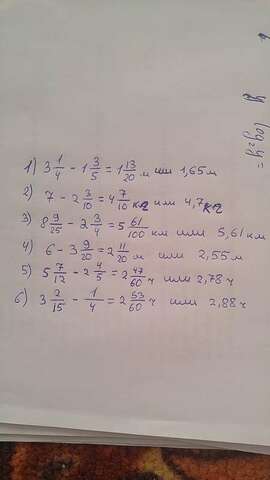 1) 3 1/4 - 1 3/5 = 1 13/20 м или 1,65 м
2) 7 - 2 3/10 = 4 7/10 кг или 4,7 кг
3) 8 9/25 - 2 3/4 = 5 61/100 км или 5,61 км
4) 6 - 3 9/20 = 2 11/20 м или 2,55 м
5) 5 7/12 - 2 4/5 = 2 47/60 ч или 2,78 ч
6) 3 2/15 - 1/4 = 2 53/60 ч или 2,88 ч